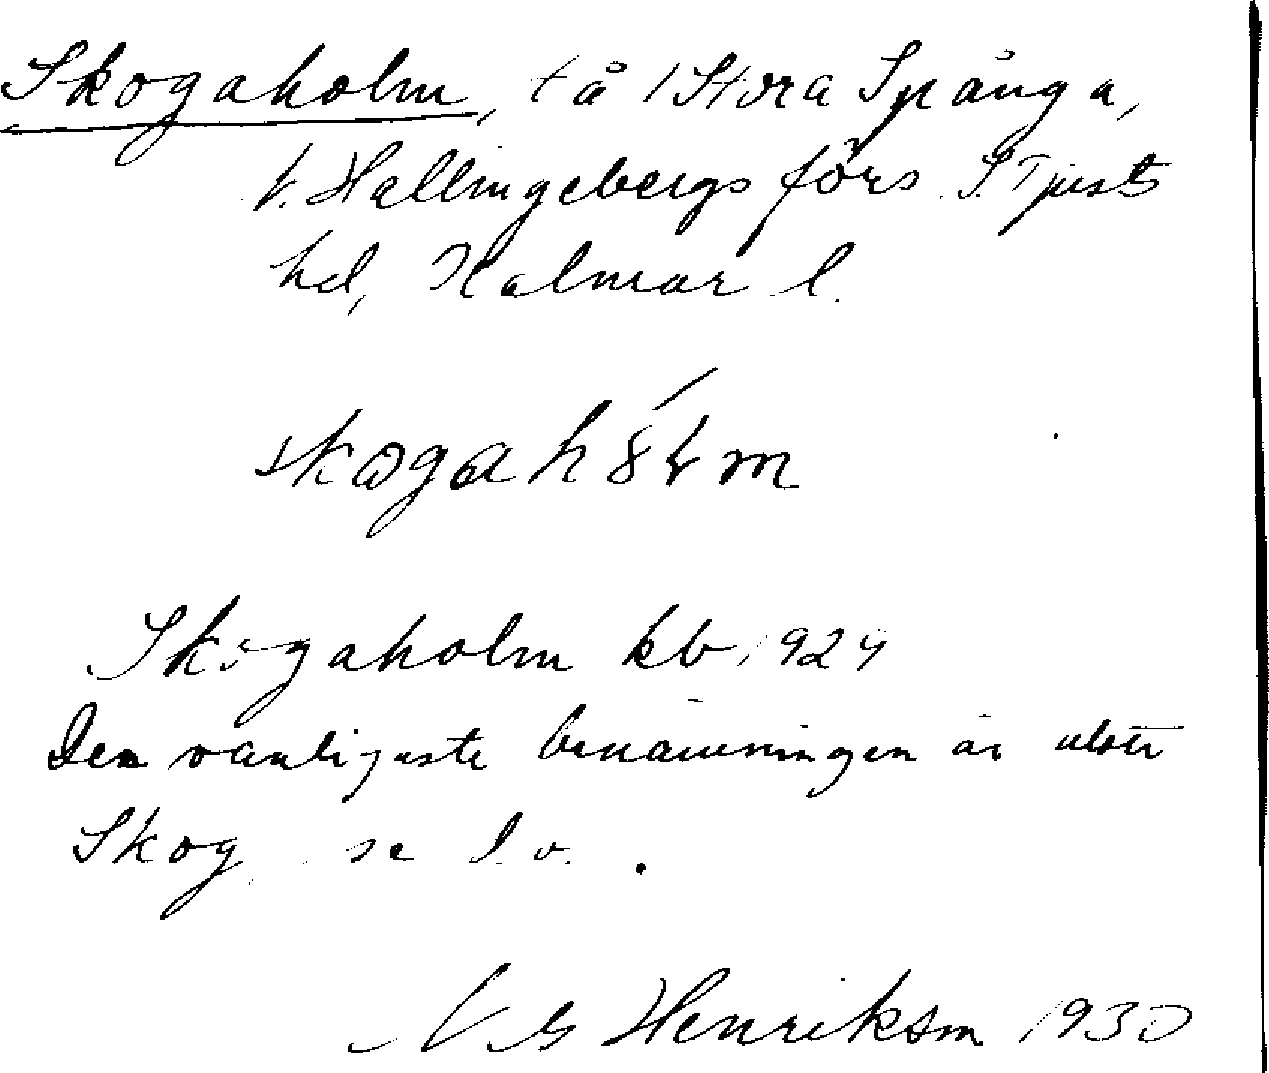 Skogaholm, t å 1 Stora Spånga,
V. Hallingebergs förs. S. Tjusts
hd, Kalmar l.
skogahólm
Skogaholm kb 1924
Den vanligaste benämningen är
Skog, se d. o.
N G Henrikson 1930